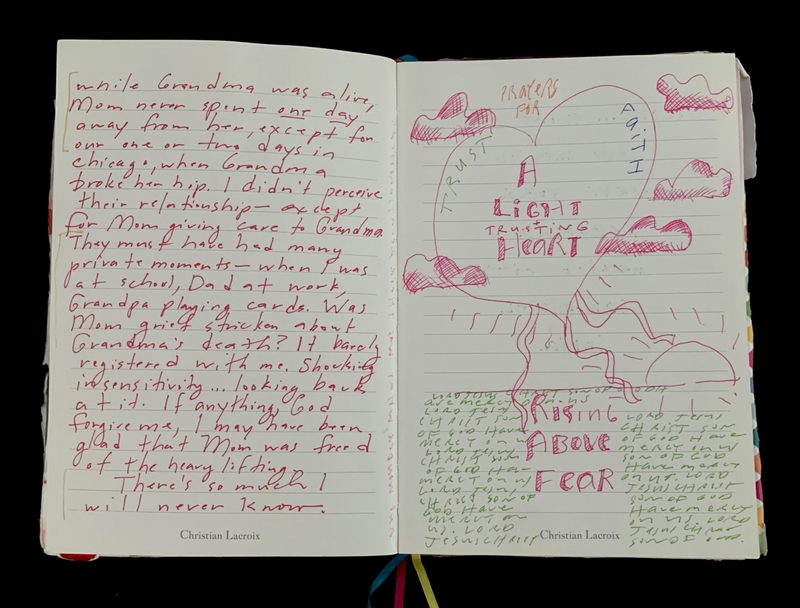 while Grandma was alive,
Mom never spent one day
away from her, except for
our one or two days in
chicago, when Grandma
broke her hip. I didn't perceive
their relationship — except
for Mom giving care to Grandma.
They must have had many
private moments — when I was
at school, Dad at work,
Grandpa playing cards. Was
Mom grief stricken about
Grandma's death? It barely
registered with me. Shocking
insensitivity... looking back
at it. If anything, God
forgive me, I may have been
glad that Mom was freed
of the heavy lifting.
There's so much I
will never know.
Christian Lacroix
PRAYERS
FOR
TRUST
FAITH
A
LIGHT
TRUSTING
HEART
RISING
ABOVE
FEAR
LORD JESUS
CHRIST SON
OF GOD HAVE
MERCY ON US
LORD JESUS
CHRIST SON
OF GOD HA-
MERCY ON US
LORD JESUS
CHRIST SON OF
GOD HAVE
MERCY ON
US. LORD
JESUS CHRIST
LORD JESUS
CHRIST SON
OF GOD HAVE
MERCY ON US
SON OF GOD
HAVE MERCY
ON US. LORD
JESUS CHRIST
SON OF GOD
HAVE MERCY
ON US. LORD
JESUS CHRIST
SON OF GOD.
Christian Lacroix